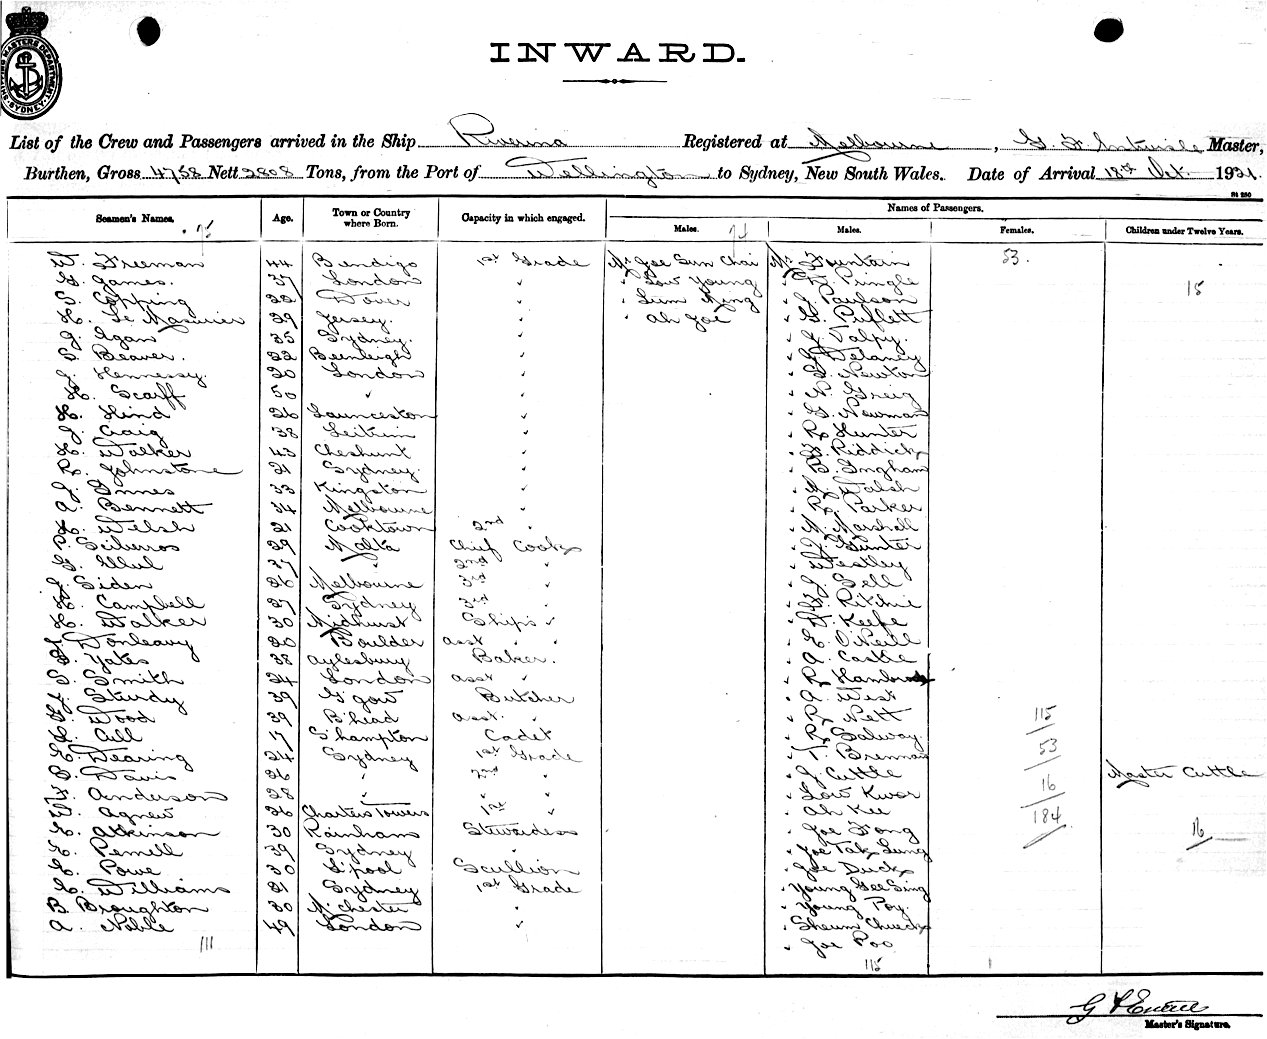 SHIPPING MASTERS DEPARTMENT SYDNEY
INWARD.
List of the Crew and Passengers arrived in the Ship Riverina Registered at Melbourne, G. F. Entwisle Master,
Burthen, Gross 4758 Nett 2808 Tons, from the Port of Wellington to Sydney, New South Wales. Date of Arrival 18th Oct. 1921.
Seamen's Names. Age. Town or Country where Born. Capacity in which engaged. Names of Passengers.
Males. Males. Females. Children under Twelve Years.
W. Freeman 44 Bendigo 1st Grade Mr. Joe Sum Chai Mr. Fountain 53
G. James. 37 London " " Low Young " Pringle 15
S. Copping 22 Dover " " Lum King " J. Paulson
H. Le Masurier 29 Jersey. " " Ah Joe " G. Puflett
J. Egan 35 Sydney. " " J. Valpy.
S. Beaver. 22 Beenleigh " " Delaney
J. Hennessy. 20 London " " Newton
H. Scaiff 50 " " " N. Greig
H. Hind 26 Launceston " " G. Newman
J. Craig 38 Leitrim " " R. Hunter
H. Walker 43 Cheshunt " " Riddick
R. Johnstone 21 Sydney. " " B. Ingham
J. Innes 33 Kingston " " Walsh
A. Bennett 34 Melbourne " " R. Parker
H. Welsh 21 Cooktown 2nd " " M. Marshall
P. Sciberros 29 Malta Chief Cook " Gunter
G. 27 " 2nd " " Westley
J. Siden 26 Melbourne 3rd " " J. Sell
H. Campbell 27 Sydney 3rd " " Ritchie
H. Walker 30 Midhurst Ship's " " Keefe
J. Donleavy 20 Boulder asst " " " E. O'Neill
Yates 38 Aylesbury Baker. " A. Castle
S. Smith 24 London asst " " R.
J. Sturdy 39 G'gow Butcher " A. West
G. Wood 39 B'head asst. " " R. Nett 115
L. 17 S'hampton Cadet " R. Salway. 53
E. Dearing 24 Sydney 1st Grade " T. Brennan
S. Davis 26 " 2nd " " J. Cuttle 16 Master Cuttle
Anderson 28 " " " " Low Kwor
W. Agnew 26 Charters Towers 1st " " Ah Kee 184
E. Atkinson 30 Rainham Stewardess " Joe Fong 16
E. Pernell 39 Sydney " " Joe Tak Lung
E. Powe 30 L'pool Scullion " Joe Duck
E. Williams 21 Sydney 1st Grade " Young Gee Sing
B. Broughton 30 M'chester " " Young Poy.
A. Noble 49 London " " Sheum Chuck
" Joe Poo
111 115
Master's Signature.